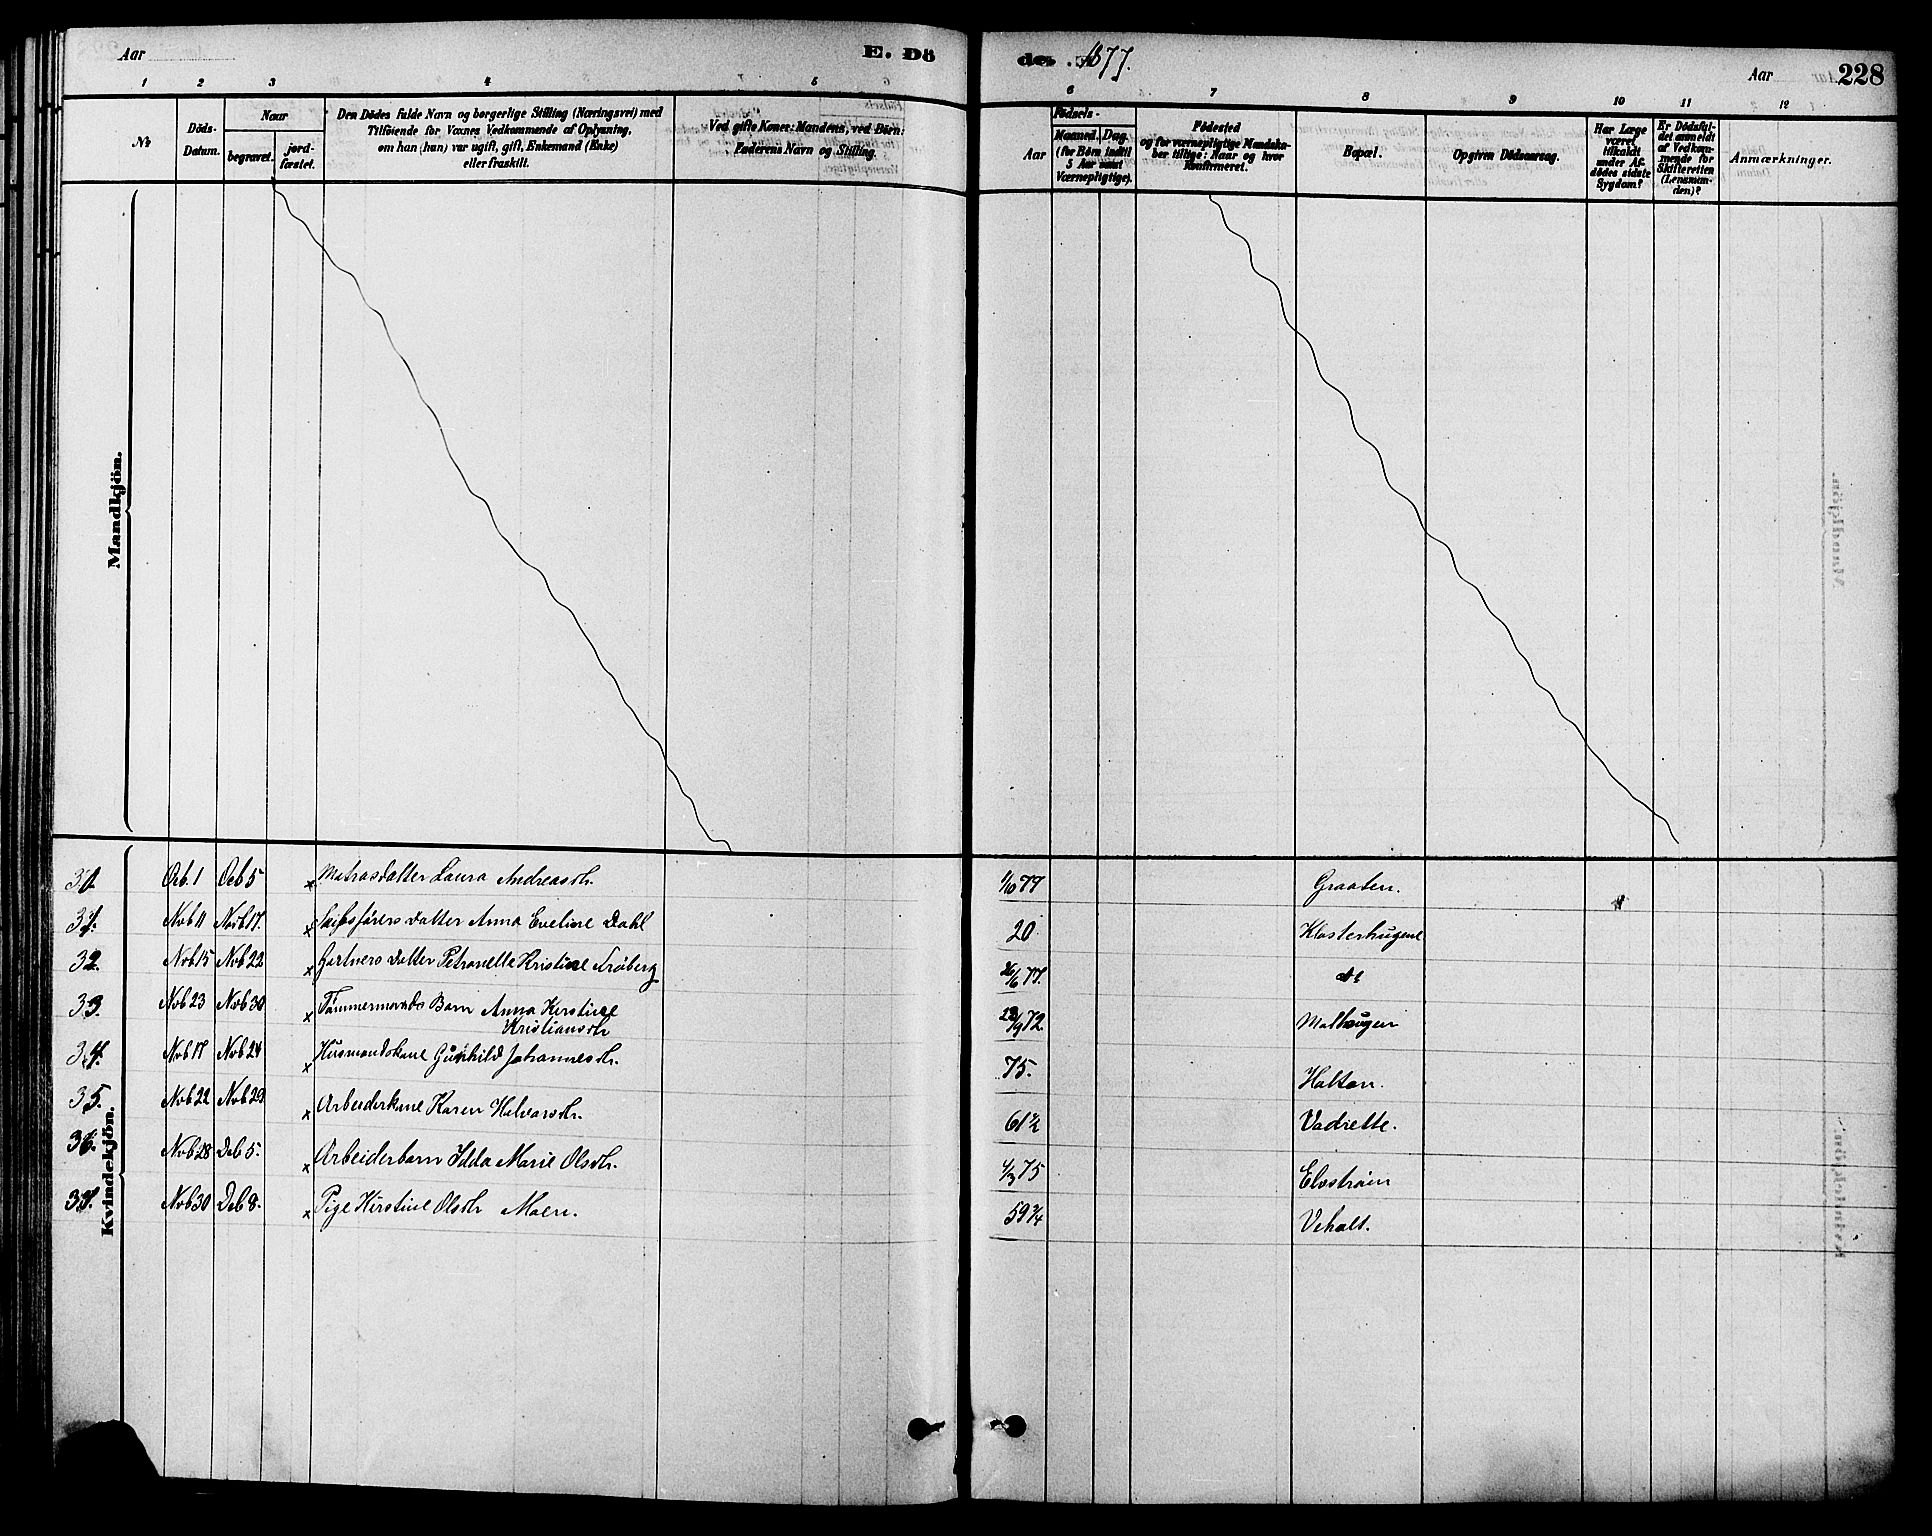 Aar
E. Dö
des 1877.
Aar
228
1 2 3 4 5
6 7 8 9 10 11 12
No
Döds-Datum.
Naar
begravet.
jord-fæstet.
Den Dödes fulde Navn og borgerlige Stilling (Næringsvei) med
Tilföiende for Voxnes Vedkommende af Oplysning,
om han (hun) var ugift, gift, Enkemand (Enke)
eller fraskilt.
Ved gifte Koner: Mandens, ved Börn:
Faderens Navn og Stilling.
Födsels-
Aar
Maaned. Dag.
(for Börn indtil
5 Aar samt
Værnepligtige).
Födested
og for værnepligtige Mandska-
ber tillige: Naar og hvor
Konfirmeret.
Bopæl.
Opgiven Dödsaarsag.
Har Læge
været
tilkaldt
under Af-
dödes sidste
Sygdom?
Er Dödsfal-
det anmeldt
af Vedkom-
mende for
Skifteretten
(Lensman-
den)?
Anmærkninger.
Mandkjön.
Kvindekjön.
Ocb. 1 Ocb 5 x Matrosdatter Laura Andreasdtr. 1/10 77 Graaten.
31. Nvb 11 Nvb 17. x Skibsförers datter Anna Eveline Dahl 20 Klosterhugene
32. Nvb 15 Nvb 22 x Gartners datter Petronelle Kristine Fröberg 26/6 77. do
33. Nvb 23 Nvb 30 x Tömmermands Barn Anna Kirstine
Kristiansdtr 22/9 72 Malhugen
34. Nvb 17 Nvb 24 x Husmandskone Gunhild Johannesdtr. 75. Holtan.
35. Nvb 22 Nvb 29 x Arbeiderkone Karen Halvorsdtr. 61 1/2 Vadrette.
36. Nvb 28 Dcb 5. x Arbeiderbarn Idda Marie Olsdtr. 4/3 75 Elvström
37. Nvb 30 Dcb 8. x Pige Kirstine Olsdtr Moen. 59 3/4 Veholt.